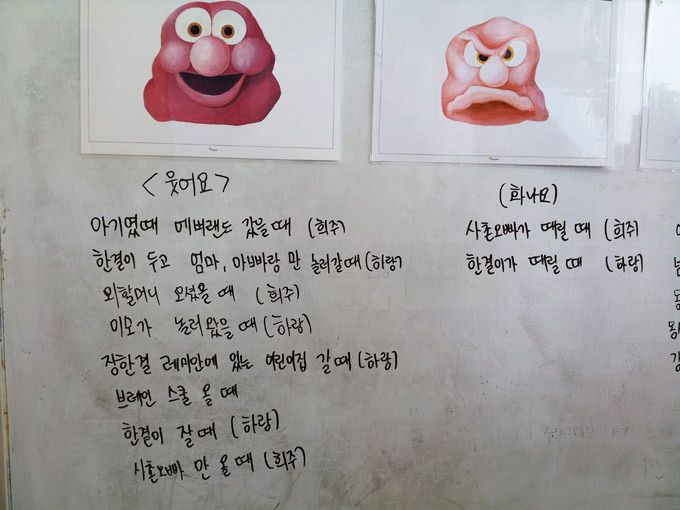 <웃어요>
아기였때 에버랜드 갔을때 (희주)
한결이 두고 엄마, 아빠랑 만 놀러갈때 (하랑)
외할머니 오셨을 때 (희주)
이모가 놀러왔을 때 (하랑)
장한결 래미안에 있는 어린이집 갈때 (하랑)
브레인 스쿨 올 때
한결이 잘때 (하랑)
사촌오빠 안 올때 (희주)
(화나요)
사촌오빠가 때릴 때 (희주)
한결이가 때릴 때 (하랑)